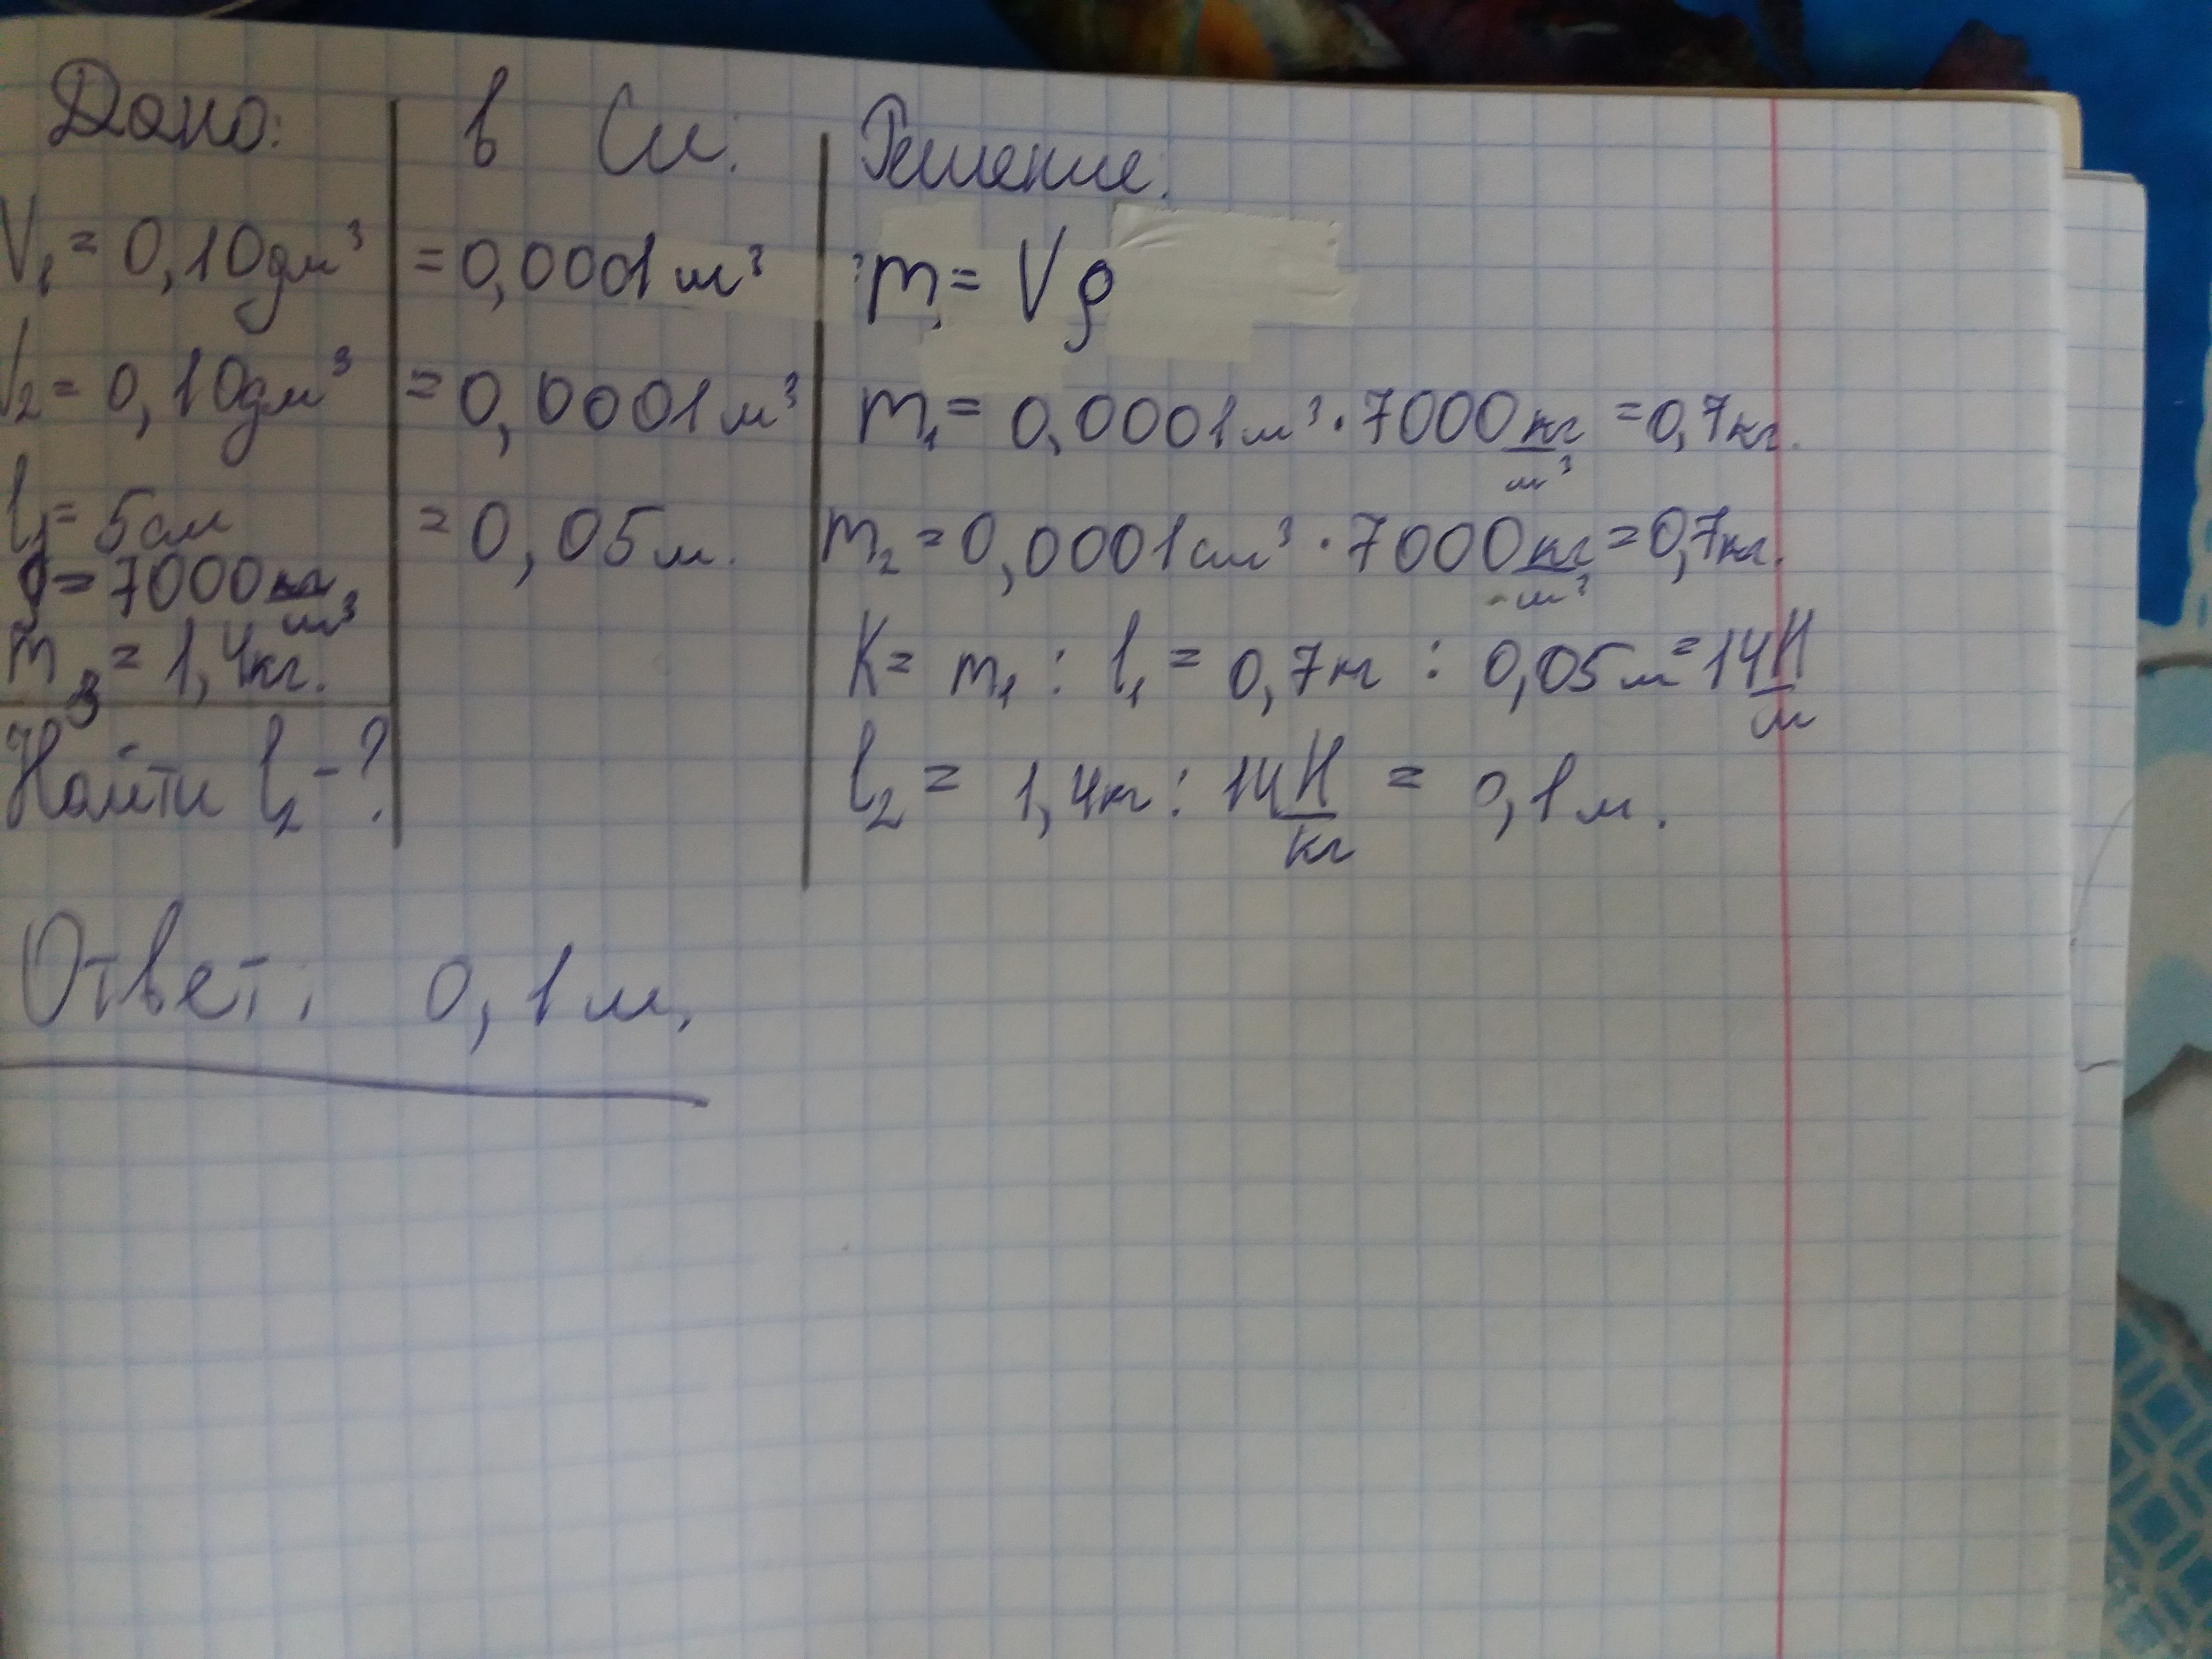 Дано:
V₁ = 0,10дм³
V₂ = 0,10дм³
l₁ = 5см
ρ = 7000кг/м³
m₃ = 1,4кг.
Найти l₂ - ?
в Си:
= 0,0001м³
= 0,0001м³
= 0,05м.
Решение:
m = Vρ
m₁ = 0,0001м³ · 7000кг/м³ = 0,7кг.
m₂ = 0,0001см³ · 7000кг/м³ = 0,7кг.
K = m₁ : l₁ = 0,7кг : 0,05м = 14Н/м
l₂ = 1,4кг : 14Н/кг = 0,1м.
Ответ: 0,1м.